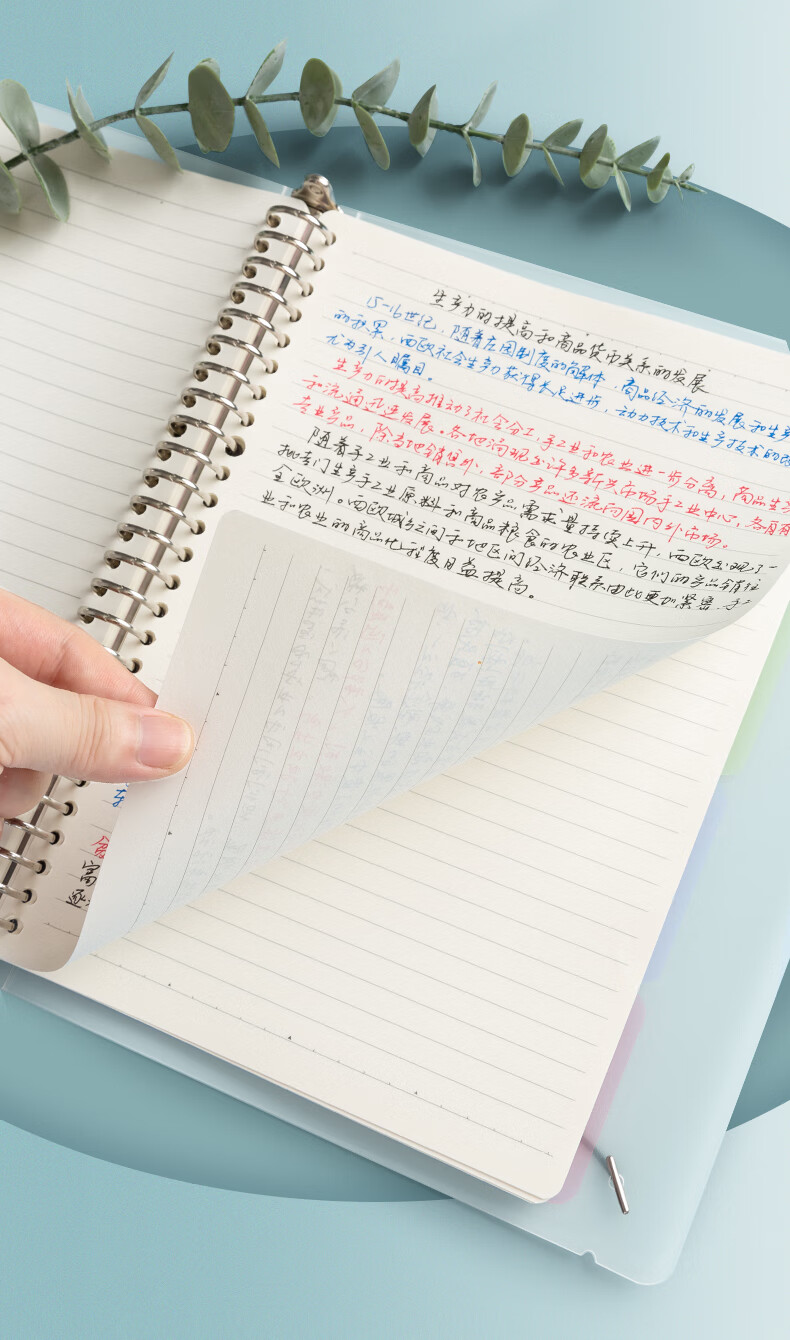 生产力的提高和商品货币关系的发展
15-16世纪，随着庄园制度的解体，商品经济的发展和生产
的积累，西欧社会生产力获得长足进步，动力技术和生产技术的改
尤为引人瞩目。
生产力的提高推动了社会分工，手工业和农业进一步分离，商品生产
和流通迅速发展。各地涌现出许多新兴市场手工业中心，各自有
专业产品，除当地销售外，部分产品还流向国内外市场。
随着手工业和商品对农产品需求量持续上升，西欧出现了一
批专门生产手工业原料和商品粮食的农业区，它们的产品销往
全欧洲。西欧城乡之间于地区间经济联系由此更加紧密，手工
业和农业的商品化程度日益提高。
富
逐